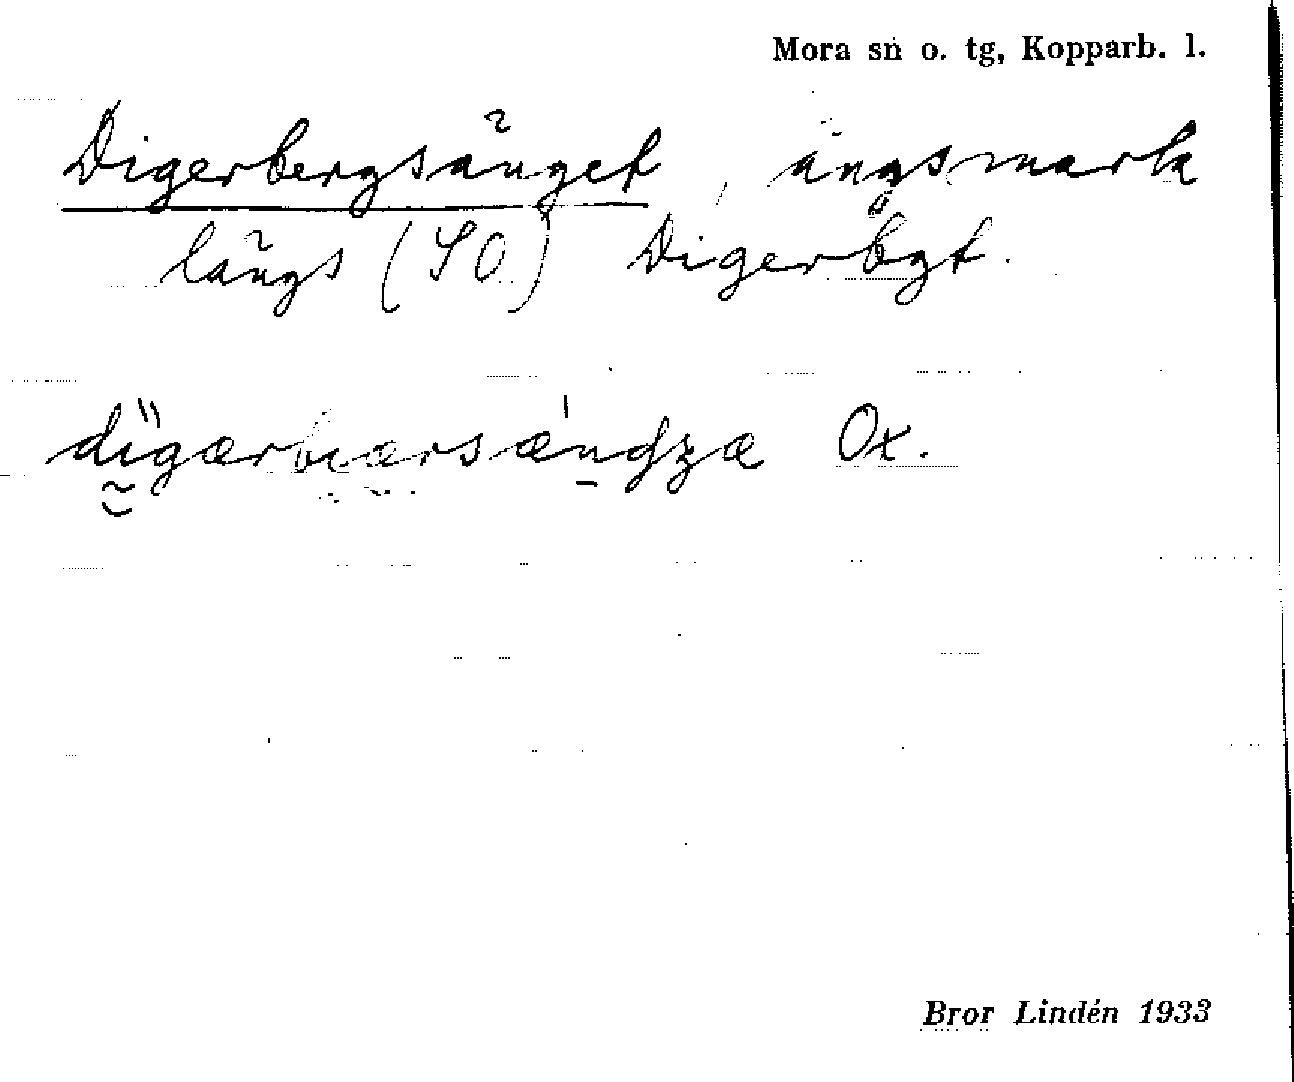 Mora sn o. tg, Kopparb. l.
Digerbergsänget, ängsmark
längs (SO) Digerbgt.
Ox.
Bror Lindén 1933